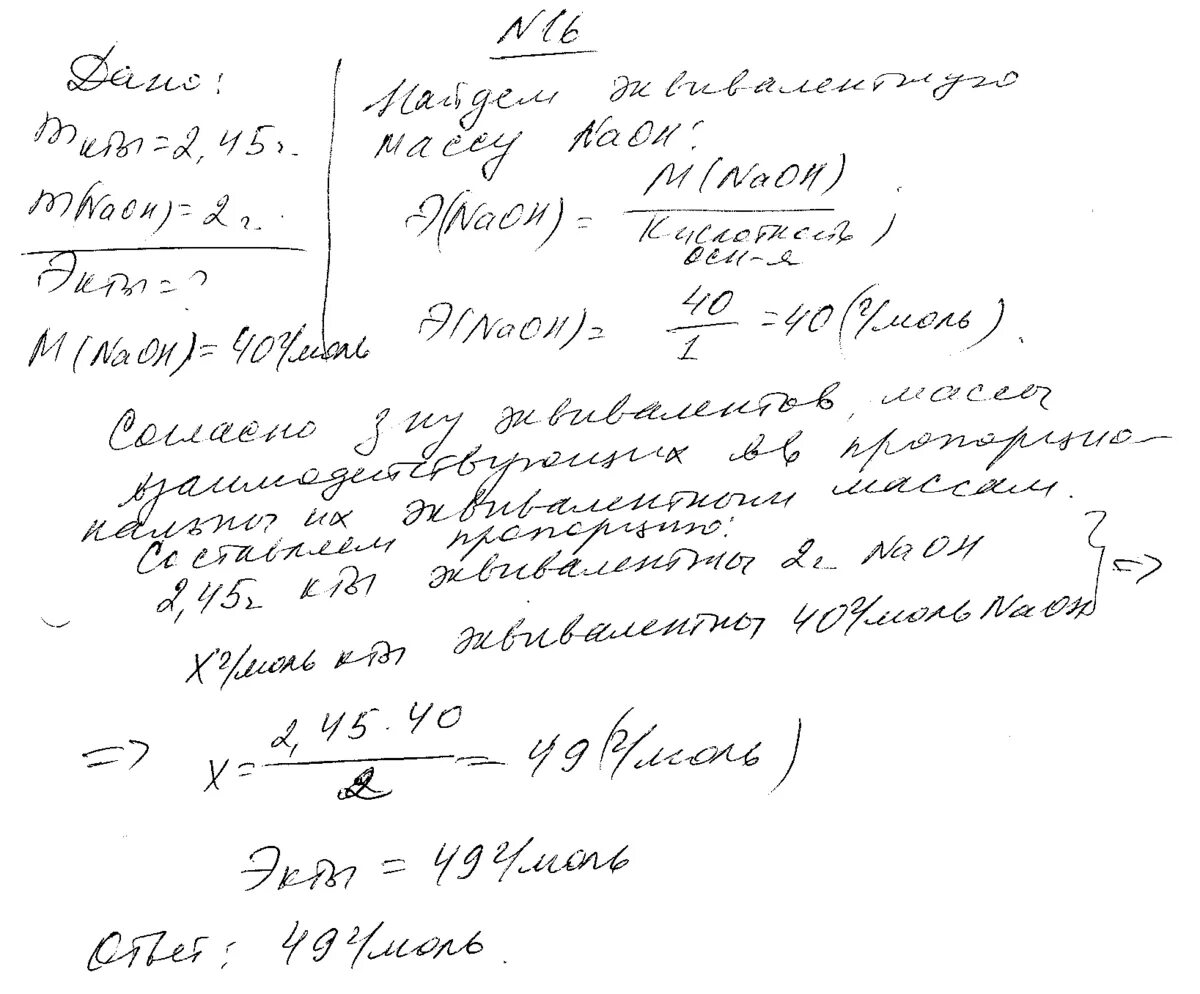 N16
Дано:
mкты = 2,45 г.
m(NaOH) = 2 г.
Экты = ?
M(NaOH) = 40 г/моль
Найдем эквивалентную
массу NaOH:
Э(NaOH) = M(NaOH) / кислотность осн-я ;
Э(NaOH) = 40 / 1 = 40 (г/моль).
Согласно з-ну эквивалентов, массы
взаимодействующих в-в пропорцио-
нальны их эквивалентным массам.
Составляем пропорцию:
2,45 г кты эквивалентны 2 г NaOH
X г/моль кты эквивалентны 40 г/моль NaOH } =>
=> X = 2,45 · 40 / 2 = 49 (г/моль)
Экты = 49 г/моль
Ответ: 49 г/моль.